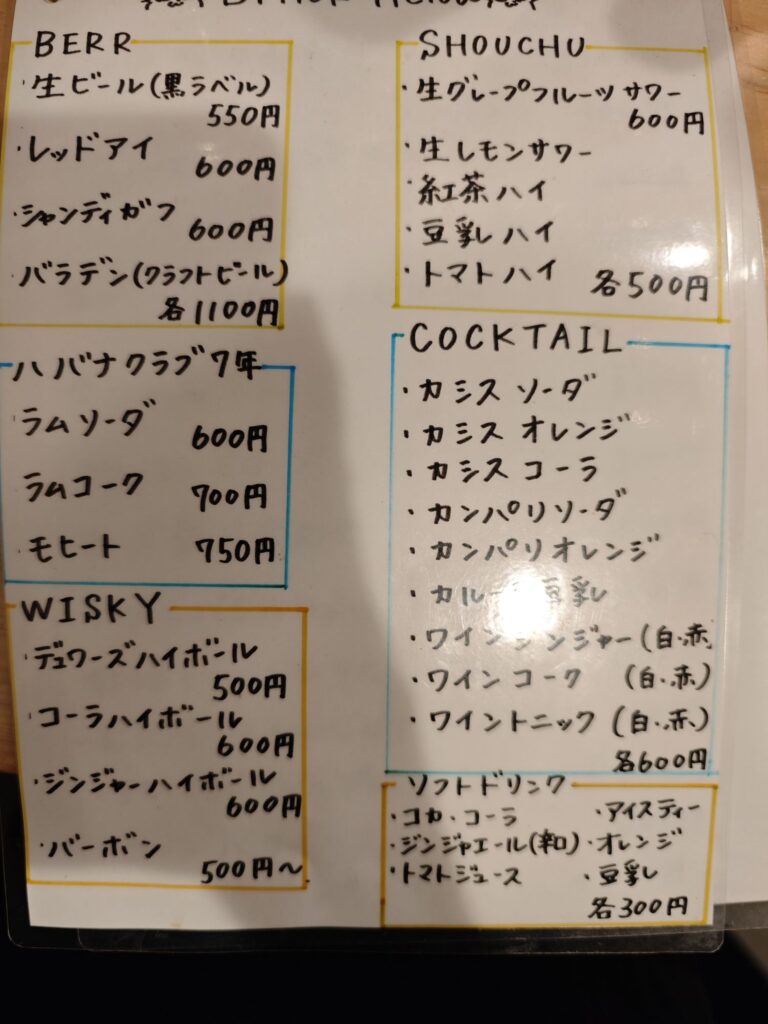 BERR
・生ビール(黒ラベル)
550円
・レッドアイ
600円
・シャンディガフ
600円
・バラデン(クラフトビール)
各1100円
ハバナクラブ7年
ラムソーダ
600円
ラムコーク
700円
モヒート
750円
WISKY
・デュワーズハイボール
500円
・コーラハイボール
600円
・ジンジャーハイボール
600円
・バーボン
500円〜
SHOUCHU
・生グレープフルーツサワー
600円
・生レモンサワー
・紅茶ハイ
・豆乳ハイ
・トマトハイ
各500円
COCKTAIL
・カシスソーダ
・カシスオレンジ
・カシスコーラ
・カンパリソーダ
・カンパリオレンジ
豆乳
・ワインジンジャー(白・赤
・ワインコーク (白・赤)
・ワイントニック (白・赤)
各600円
ソフトドリンク
・コカ・コーラ ・アイスティー
・ジンジャエール(辛口) ・オレンジ
・トマトジュース ・豆乳
各300円